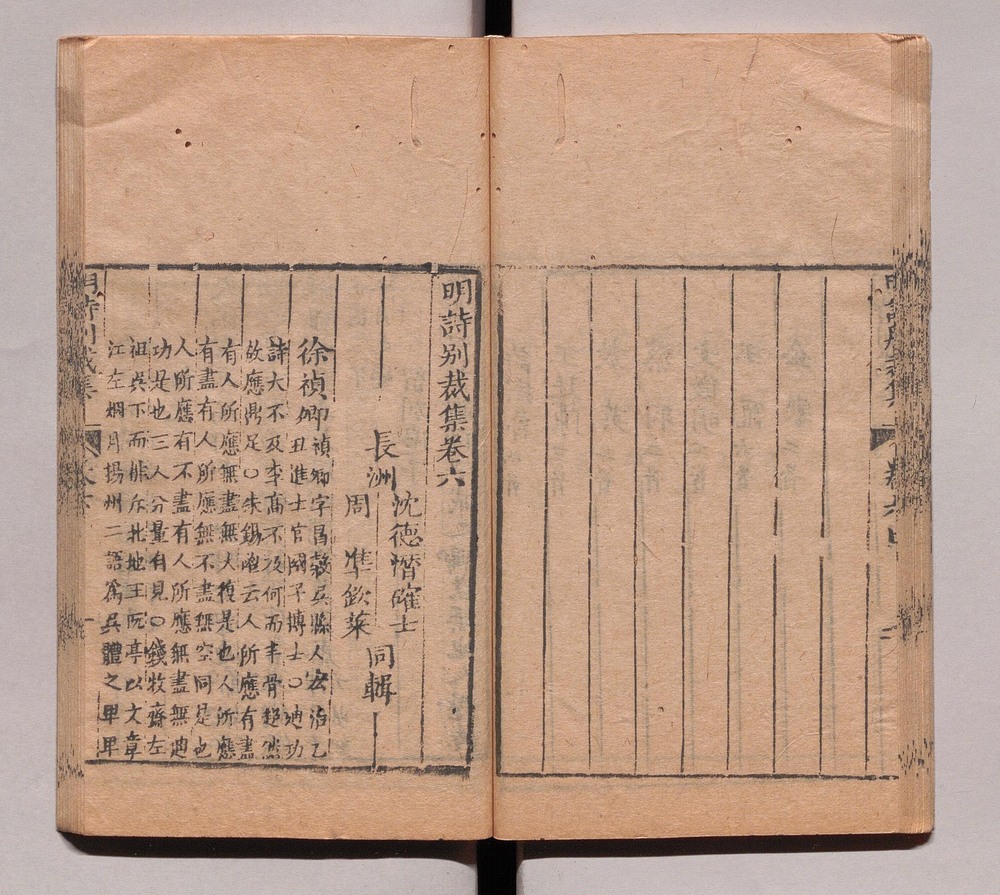 明詩別裁集卷六
長洲
沈德潛確士
周準欽萊
同輯
徐禎卿禎卿字昌穀吳縣人宏治乙
丑進士官國子博士○迪功
詩大不及李高不及何而丰骨超然
故應鼎足○朱錫鬯云人所應有盡
有人所應無盡無大復是也人所應
有盡有人所應無不盡無空同是也
人所應有不盡有人所應無盡無迪
功是也三人分量自見○錢牧齋左
祖吳下而排斥北地王阮亭以文章
江左烟月揚州二語爲吳體之卑卑
明詩別裁集